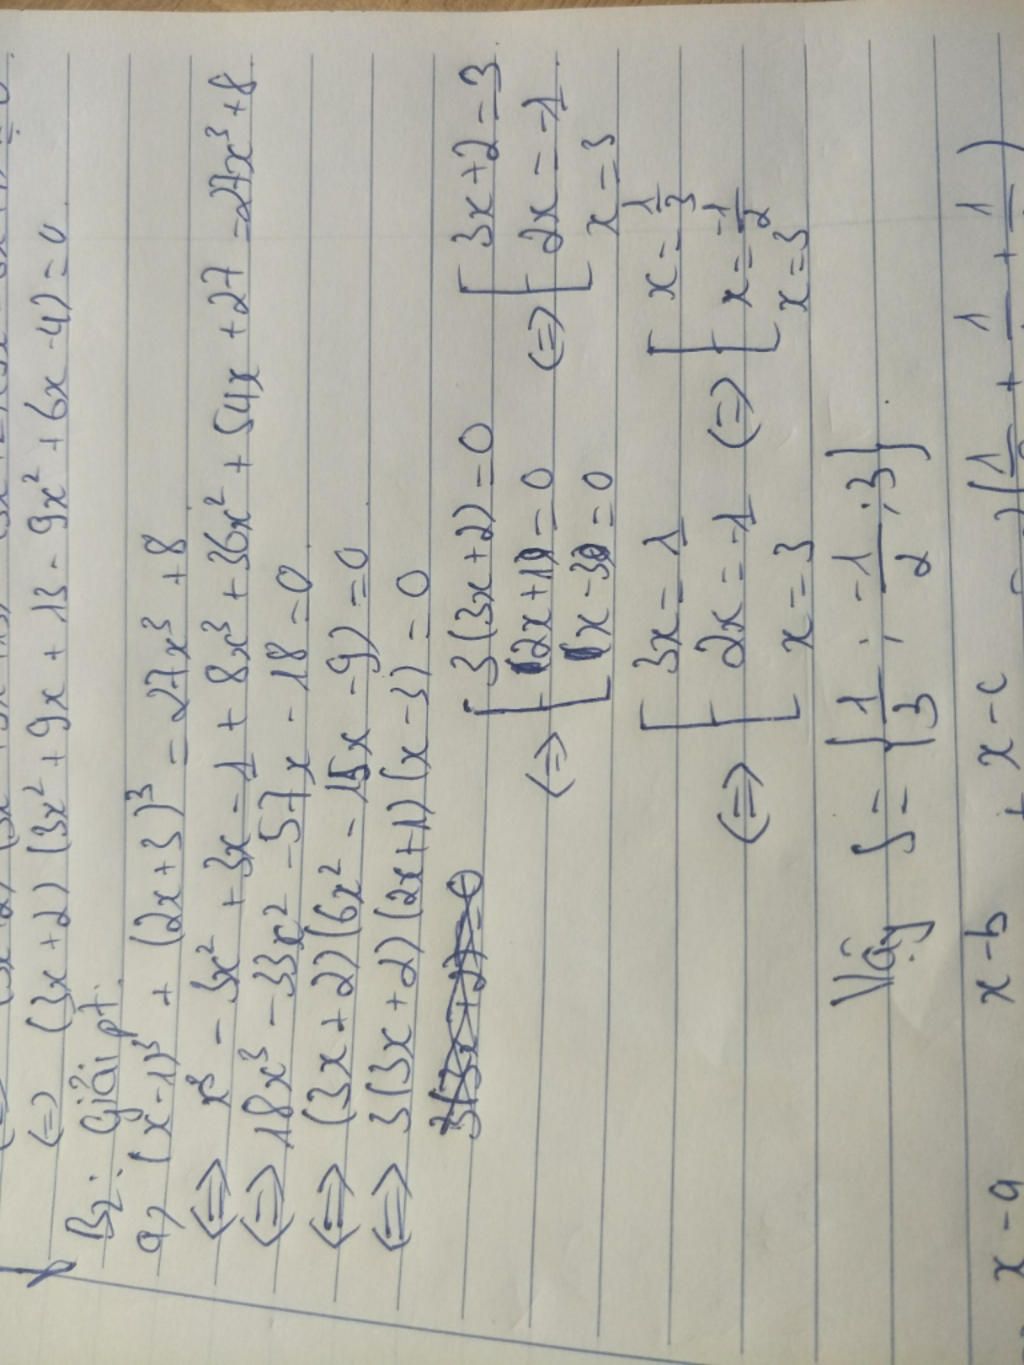 (=) (3x+2)(3x² + 9x + 13 - 9x² + 6x - 4) = 0
B2: Giải pt:
a, (x-1)³ + (2x+3)³ = 27x³ + 8
(=) x³ - 3x² + 3x - 1 + 8x³ + 36x² + 54x + 27 = 27x³ + 8
(=) 18x³ - 33x² - 57x - 18 = 0
(=) (3x+2)(6x² - 15x - 9) = 0
(=) 3(3x+2)(2x+1)(x-3) = 0
3(3x+2)=0
(=) [ 3(3x+2) = 0 (=) [ 3x+2 = 3
2x+1 = 0 2x = -1
x-3 = 0 x = 3
(=) [ 3x = 1 (=) [ x = 1/3
2x = -1 x = -1/2
x = 3 x = 3
Vậy S = {1/3 ; -1/2 ; 3}
x-a x-b + x-c